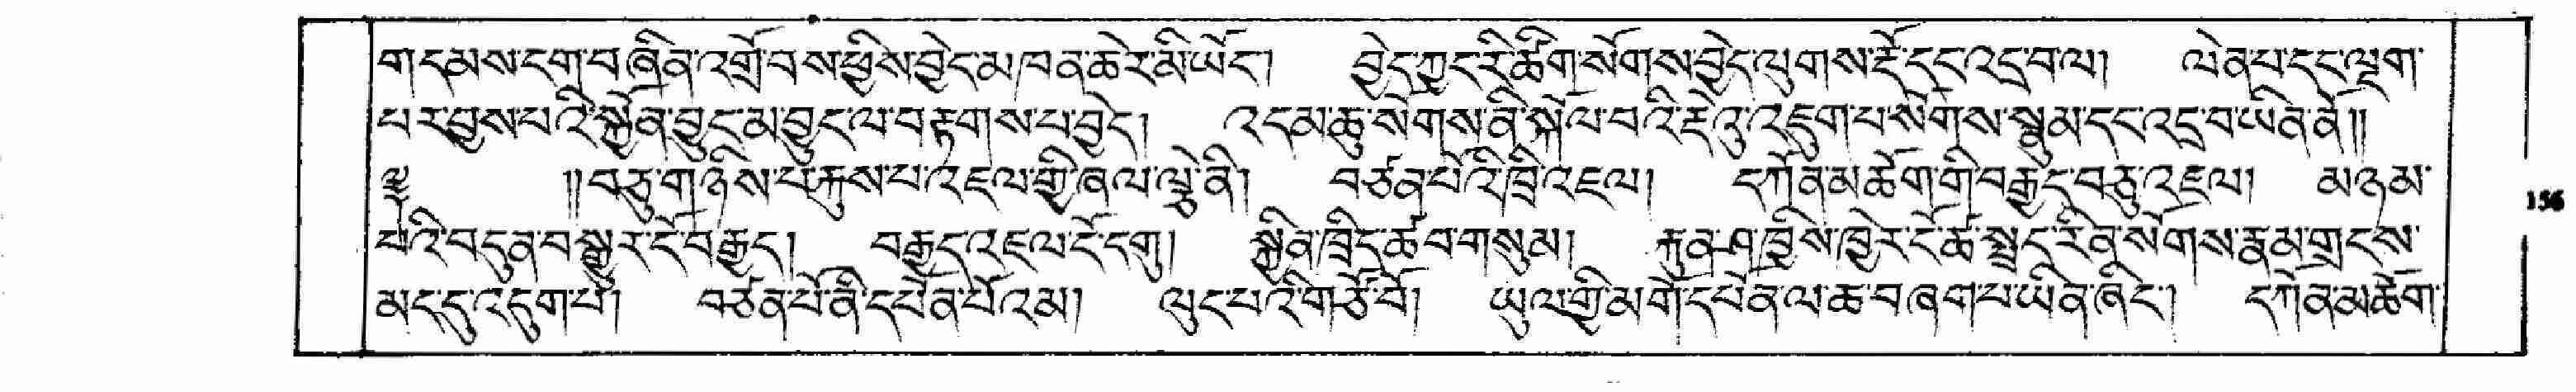 གདམས་ངག་བཞིན་འགྲོ་བས་ཕྱིས་བྱེད་མ་ཁན་ཆེར་མི་ཡོང༌། བྱེད་ཀྱང་རི་ཚིག་སོགས་བྱེད་ལུགས་རྡོ་དང་འདྲ་བ་ལ། ལེན་པ་དང་ལྡག་
པར་བྱས་པའི་སྐྱོན་བྱུང་མ་བྱུང་ལ་བརྟགས་པ་བྱེད། འདམ་ཆུ་སོགས་ནི་སྐོལ་བའི་རྡེའུ་འཇུག་པ་སོགས་སྣུམ་དང་འདྲ་བ་ཡིན་ནོ།།
༄ །།བཅུ་གཉིས་པ་རྐུས་པ་འཇལ་གྱི་ཞལ་ལྕེ་ནི། བཙན་པོའི་ཁྲི་འཇལ། དཀོན་མཆོག་གི་བརྒྱད་བཅུ་འཇལ། མཉམ་
པའི་བདུན་བསྒྱུར་ངོ་བརྒྱད། བརྒྱད་འཇལ་ངོ་དགུ། སྐྱིན་ཁྲིད་ཚབ་གསུམ། རྐུན་ཤ་ཁྱིས་ཁྱེར་ངོ་ཚ་སྤྲད་རིན་སོགས་རྣམ་གྲངས་
མང་དུ་འདུག་པ། བཙན་པོ་ནི་དཔོན་པོ་འམ། ལུང་པའི་གཙོ་བོ། ཡུལ་གྱི་མགོ་དཔོན་ལ་ཆ་བཞག་པ་ཡིན་ཞིང༌། དཀོན་མཆོག་
156